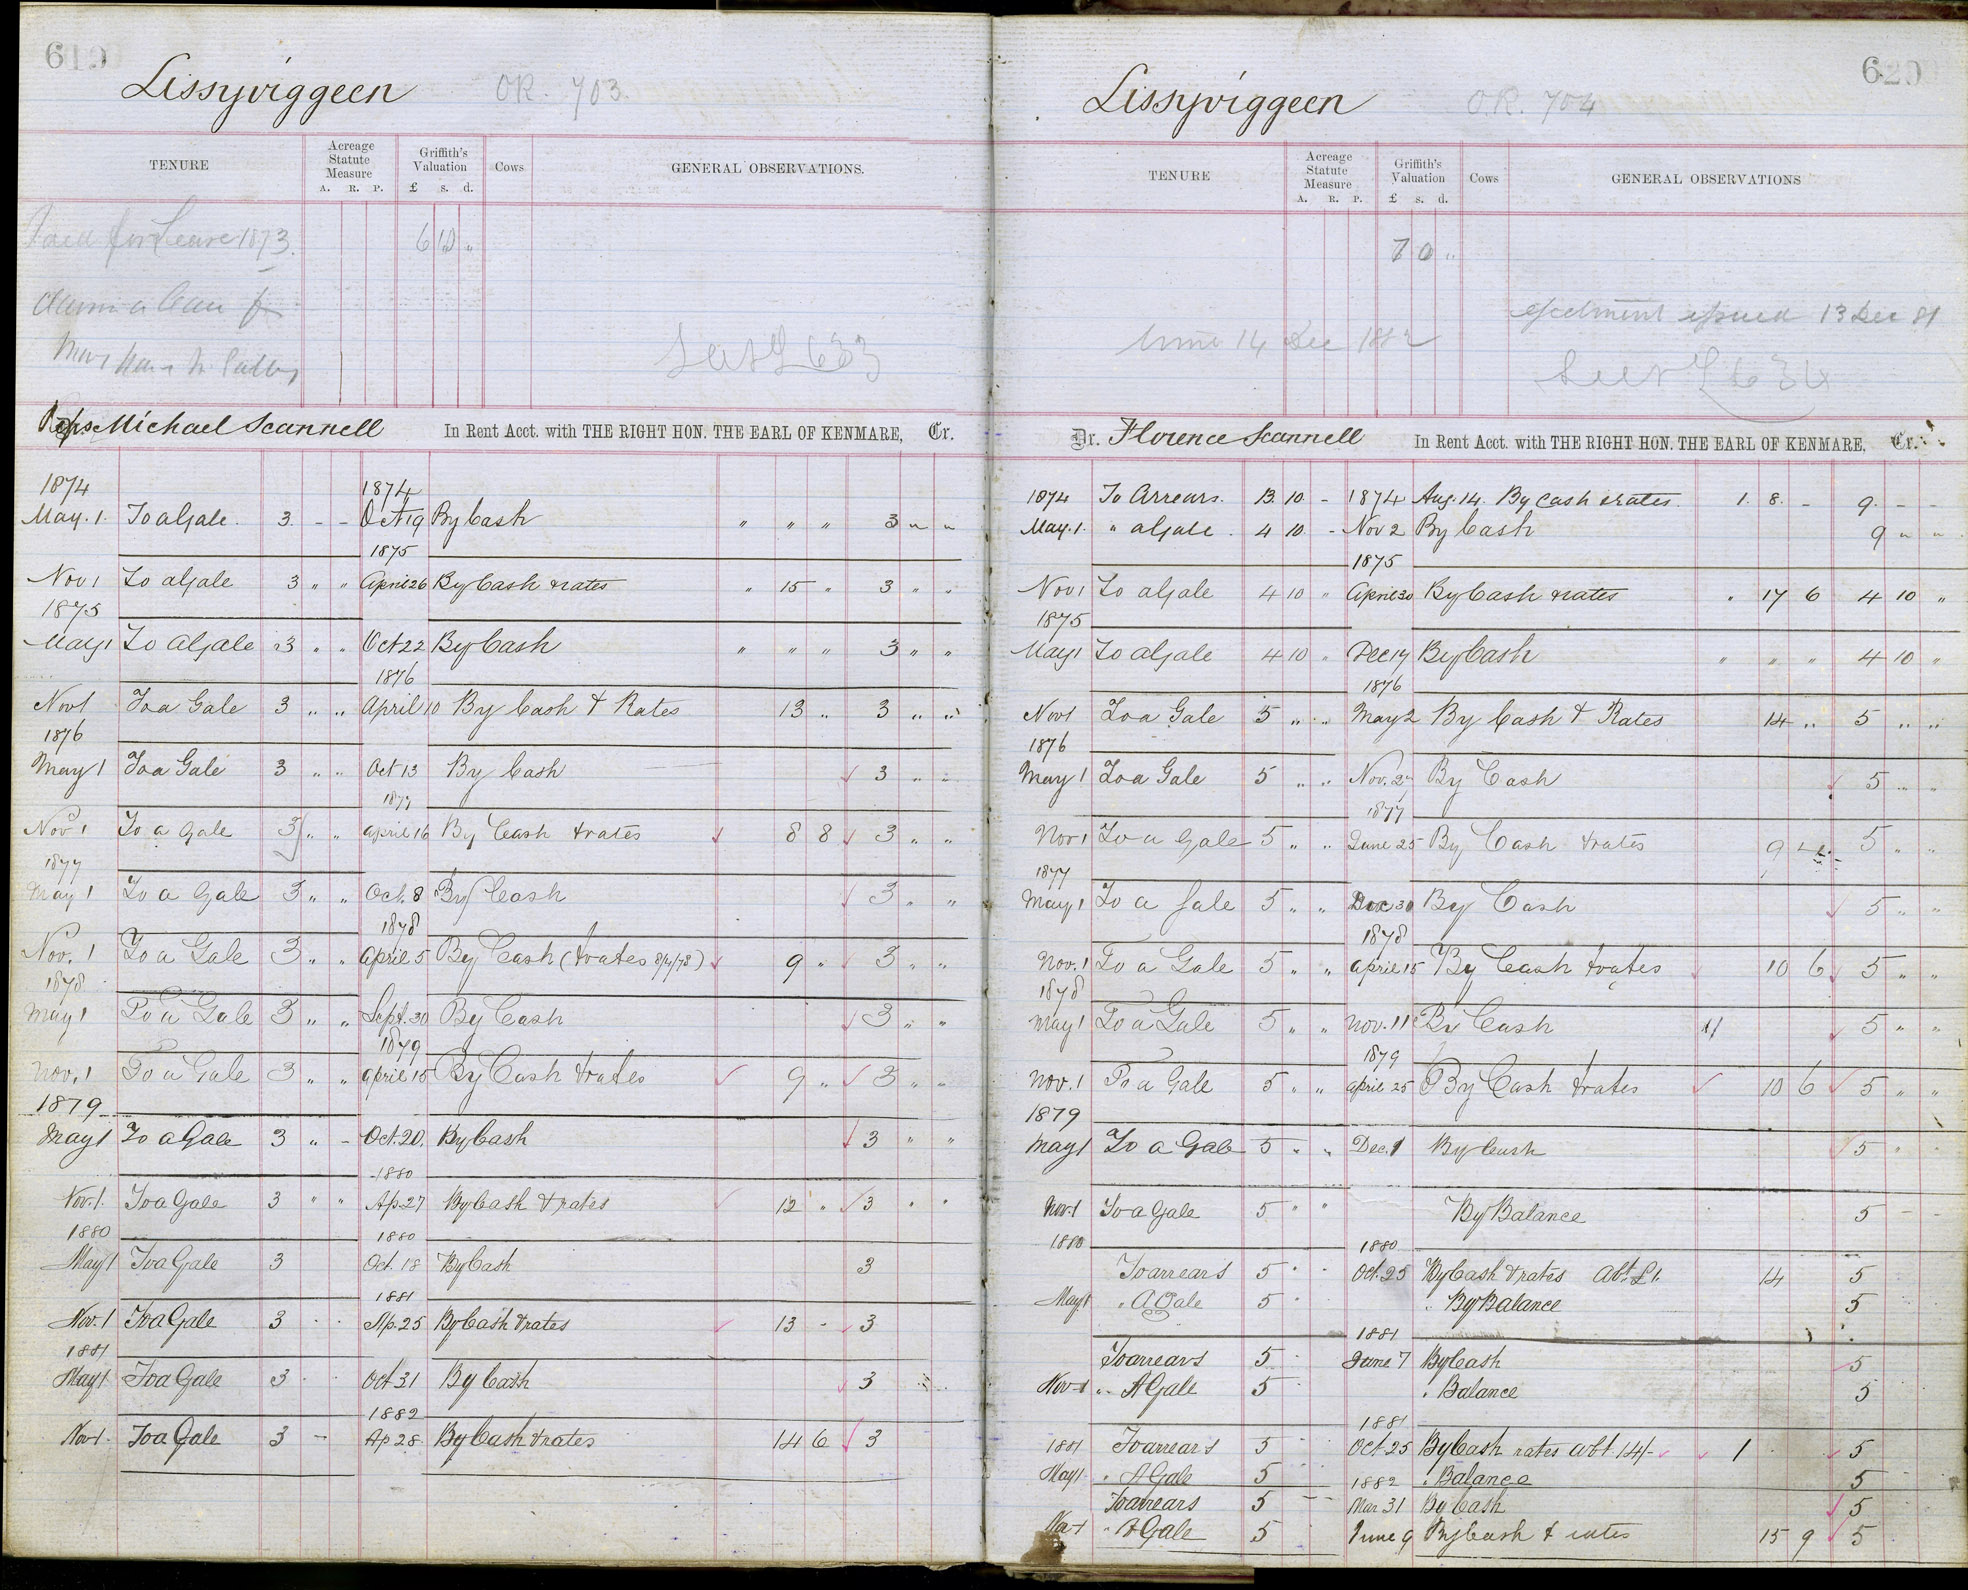 619
Lissyviggeen OR. 703.
TENURE Acreage Statute Measure A. R. P. Griffith's Valuation £ s. d. Cows GENERAL OBSERVATIONS.
for Lease 1873 6 10 "
See L 633
Reps Michael Scannell In Rent Acct. with THE RIGHT HON. THE EARL OF KENMARE, Cr.
1874 1874
May. 1. To a Gale. 3 - - Oct 19 By Cash " " " 3 " "
1875
Nov 1 To a Gale 3 " " April 26 By Cash & rates " 15 " 3 " "
1875
May 1 To a Gale 3 " " Oct 22 By Cash " " " 3 " "
1876
Nov 1 To a Gale 3 " " April 10 By Cash & Rates 13 " 3 " "
1876
May 1 To a Gale 3 " " Oct 13 By Cash 3 " "
1877
Nov 1 To a Gale 3 " " April 16 By Cash & rates 8 8 3 " "
1877
May 1 To a Gale 3 " " Oct. 8 By Cash 3 " "
1878
Nov. 1 To a Gale 3 " " April 5 By Cash (& rates 8/4/78) 9 " 3 " "
1878
May 1 To a Gale 3 " " Sept. 30 By Cash 3 " "
1879
Nov. 1 To a Gale 3 " " April 15 By Cash & rates 9 " 3 " "
1879
May 1 To a Gale 3 " - Oct. 20. By Cash 3 " "
1880
Nov. 1. To a Gale 3 " " Ap 27 By Cash & rates 12 " 3 " "
1880 1880
May 1 To a Gale 3 Oct. 18 By Cash 3
1881
Nov. 1 To a Gale 3 Ap. 25 By Cash & rates 13 - 3
1881
May 1 To a Gale 3 Oct 31 By Cash 3
1882
Nov 1. To a Gale 3 - Ap 28. By Cash & rates 14 6 3
620
Lissyviggeen O.R. 704
TENURE Acreage Statute Measure A. R. P. Griffith's Valuation £ s. d. Cows GENERAL OBSERVATIONS
7 0 "
ejectment issued 13 Dec 81
14 Dec 1882
See L 634
Dr. Florence Scannell In Rent Acct. with THE RIGHT HON. THE EARL OF KENMARE, Cr.
1874 To Arrears. 13. 10. - 1874 Aug. 14. By Cash & rates. 1. 8. - 9. - -
May. 1. " a Gale. 4 10 - Nov 2 By Cash 9 " "
1875
Nov 1 To a Gale 4 10 " April 30 By Cash & rates " 17 6 4 10 "
1875
May 1 To a Gale 4 10 " Dec 17 By Cash " " " 4 10 "
1876
Nov 1 To a Gale 5 " " May 2 By Cash & Rates 14 " 5 " "
1876
May 1 To a Gale 5 " " Nov. 27 By Cash 5 " "
1877
Nov 1 To a Gale 5 " " June 25 By Cash & rates 9 4 5 " "
1877
May 1 To a Gale 5 " " Dec 30 By Cash 5 " "
1878
Nov. 1 To a Gale 5 " " April 15 By Cash & rates 10 6 5 " "
1878
May 1 To a Gale 5 " " Nov. 11 By Cash 5 " "
1879
Nov. 1 To a Gale 5 " " April 25 By Cash & rates 10 6 5 " "
1879
May 1 To a Gale 5 " " Dec. 1 By Cash 5
Nov. 1 To a Gale 5 " " By Balance 5 - -
1880 1880
To arrears 5 Oct. 25 By Cash & rates Abt. £1. 14 5
May 1 " A Gale 5 " By Balance 5
1881
To arrears 5 June 7 By Cash 5
Nov 1 " A Gale 5 " Balance 5
1881
1881 To arrears 5 Oct 25 By Cash rates abt. 14/- 1 5
May 1 " A Gale 5 1882 " Balance 5
To arrears 5 - - Mar 31 By Cash 5
Nov 1 " A Gale 5 June 9 By Cash & rates 15 9 5